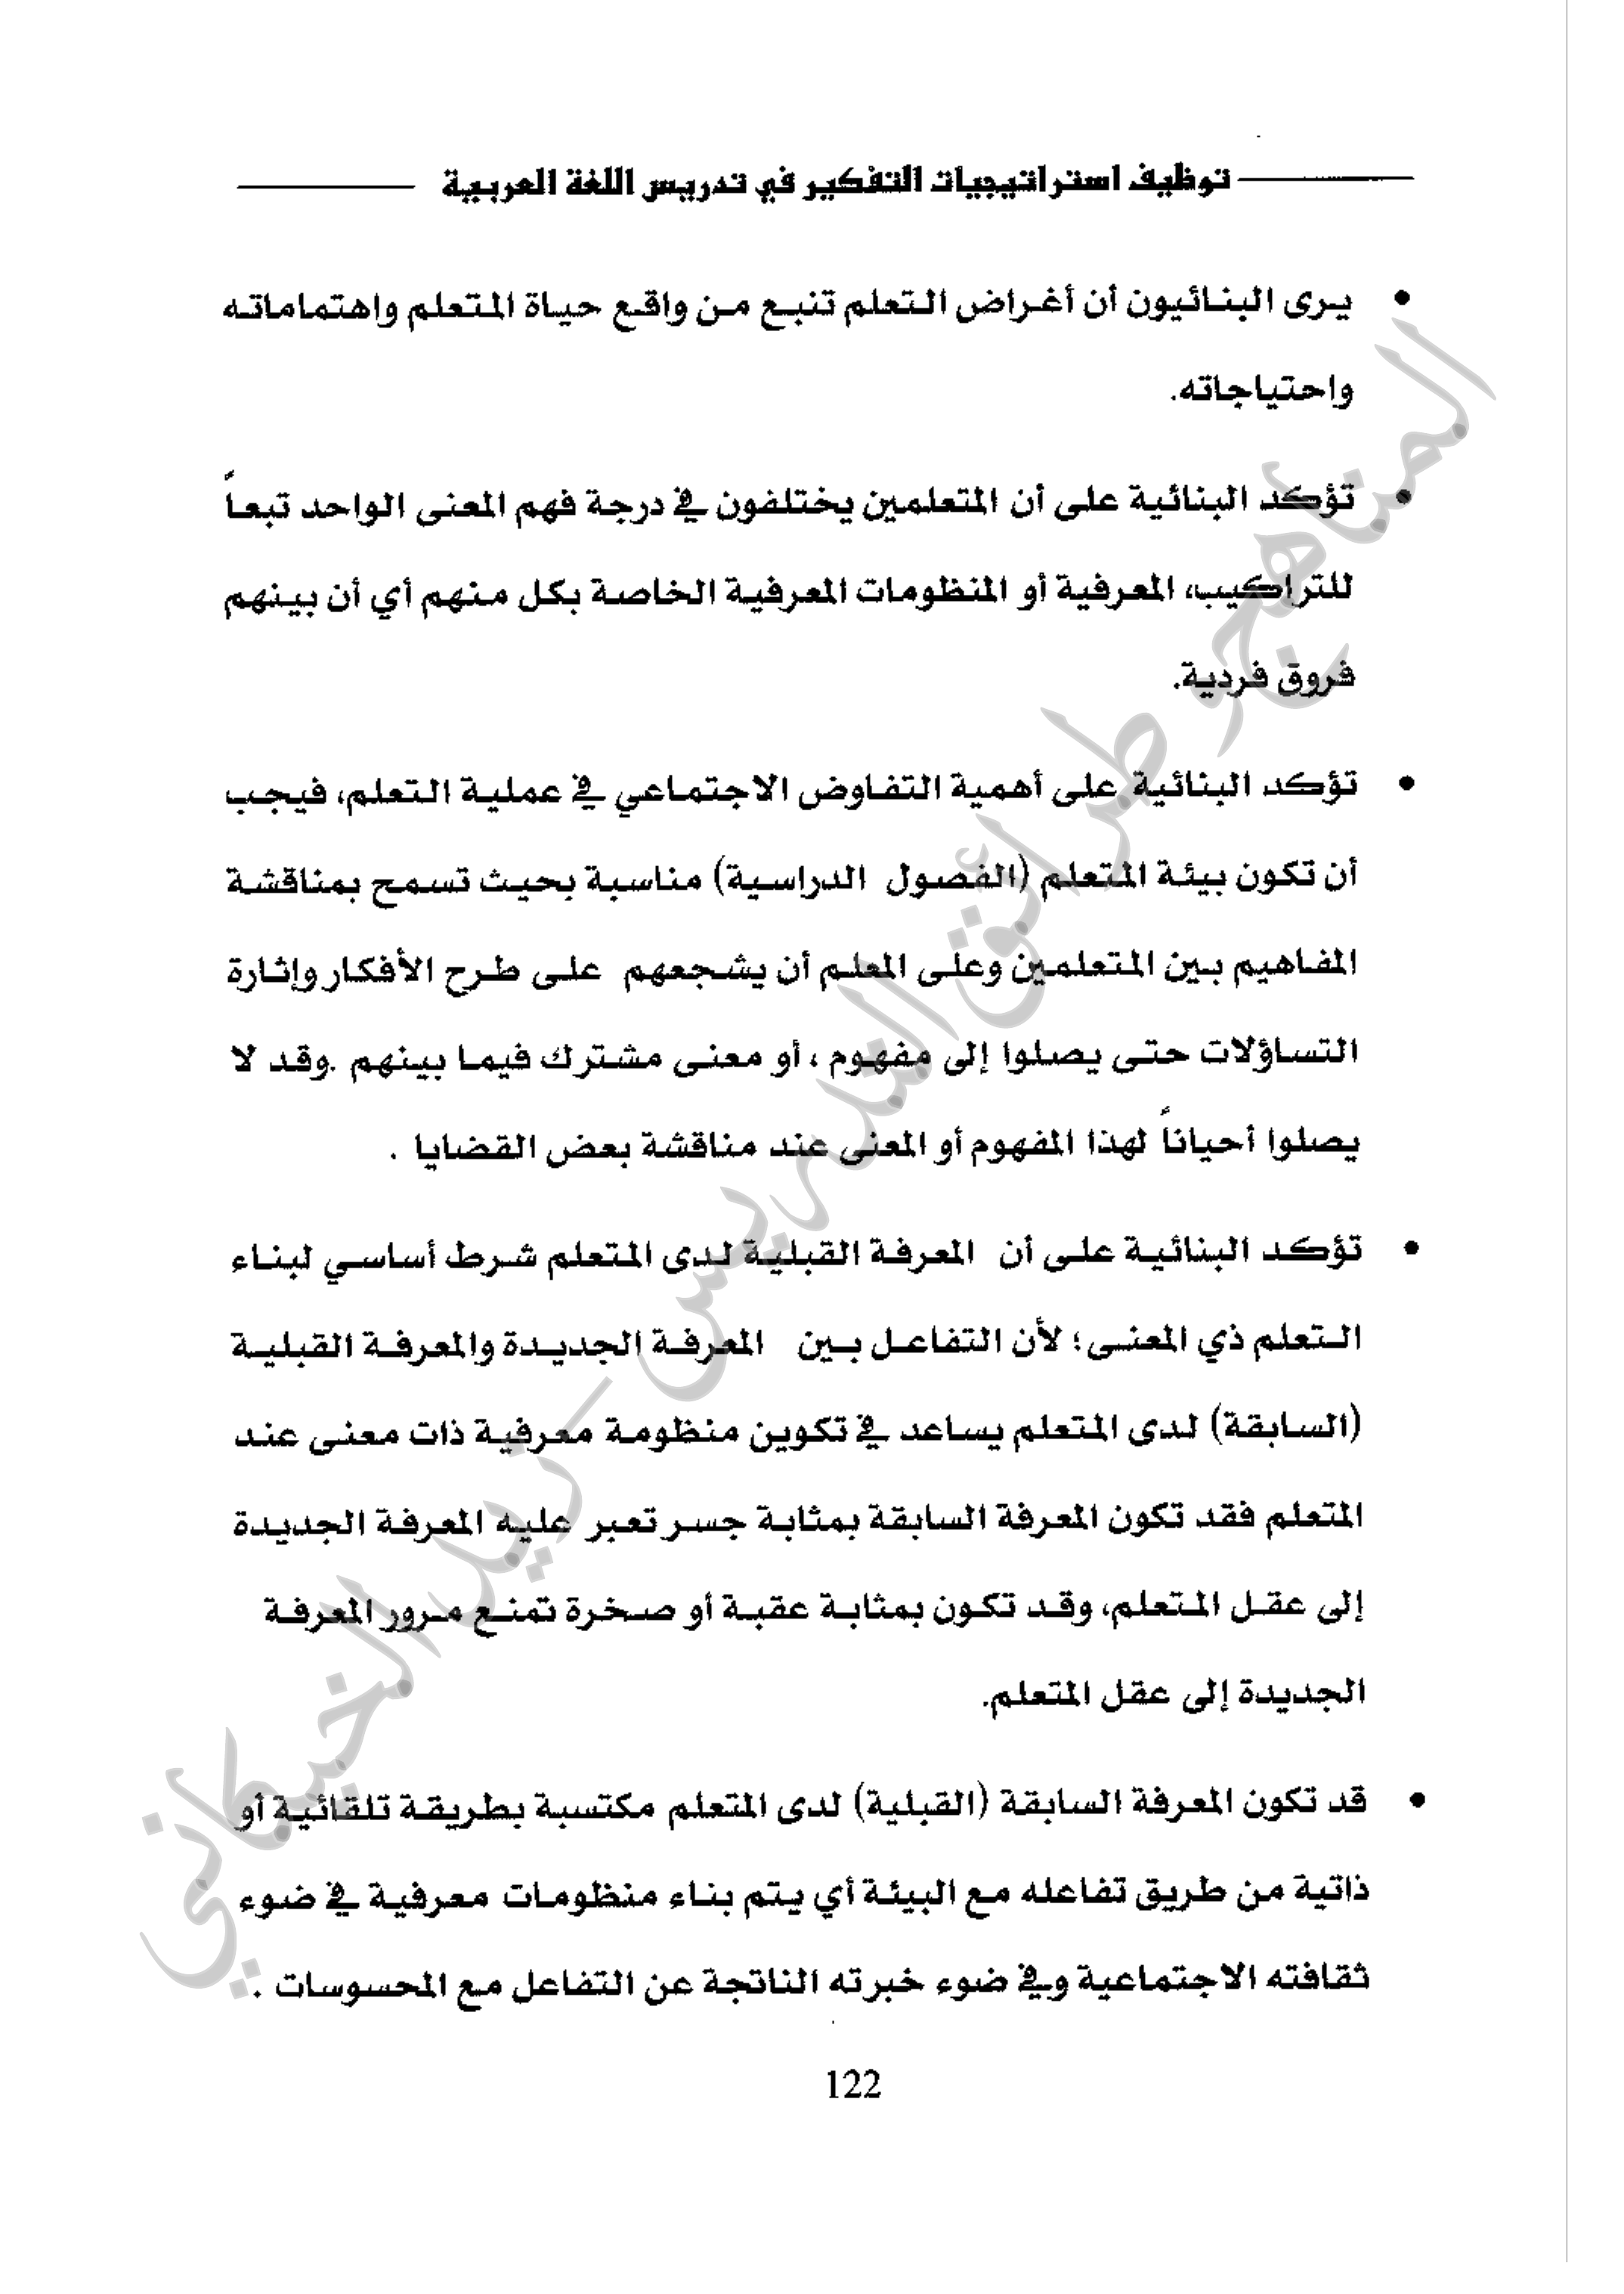 توظيف استراتيجيات التفكير في تدريس اللغة العربية
• يرى البنائيون أن أغراض التعلم تنبع من واقع حياة المتعلم واهتماماته
واحتياجاته.
• تؤكد البنائية على أن المتعلمين يختلفون في درجة فهم المعنى الواحد تبعاً
للتراكيب، المعرفية أو المنظومات المعرفية الخاصة بكل منهم أي أن بينهم
فروق فردية.
• تؤكد البنائية على أهمية التفاوض الاجتماعي في عملية التعلم، فيجب
أن تكون بيئة المتعلم (الفصول الدراسية) مناسبة بحيث تسمح بمناقشة
المفاهيم بين المتعلمين وعلى المعلم أن يشجعهم على طرح الأفكار وإثارة
التساؤلات حتى يصلوا إلى مفهوم ، أو معنى مشترك فيما بينهم .وقد لا
يصلوا أحياناً لهذا المفهوم أو المعنى عند مناقشة بعض القضايا .
• تؤكد البنائية على أن المعرفة القبلية لدى المتعلم شرط أساسي لبناء
التعلم ذي المعنى؛ لأن التفاعل بين المعرفة الجديدة والمعرفة القبلية
(السابقة) لدى المتعلم يساعد في تكوين منظومة معرفية ذات معنى عند
المتعلم فقد تكون المعرفة السابقة بمثابة جسر تعبر عليه المعرفة الجديدة
إلى عقل المتعلم، وقد تكون بمثابة عقبة أو صخرة تمنع مرور المعرفة
الجديدة إلى عقل المتعلم.
• قد تكون المعرفة السابقة (القبلية) لدى المتعلم مكتسبة بطريقة تلقائية أو
ذاتية من طريق تفاعله مع البيئة أي يتم بناء منظومات معرفية في ضوء
ثقافته الاجتماعية وفي ضوء خبرته الناتجة عن التفاعل مع المحسوسات .
122
المناهج وطرائق التدريس – زيد الخيكاني